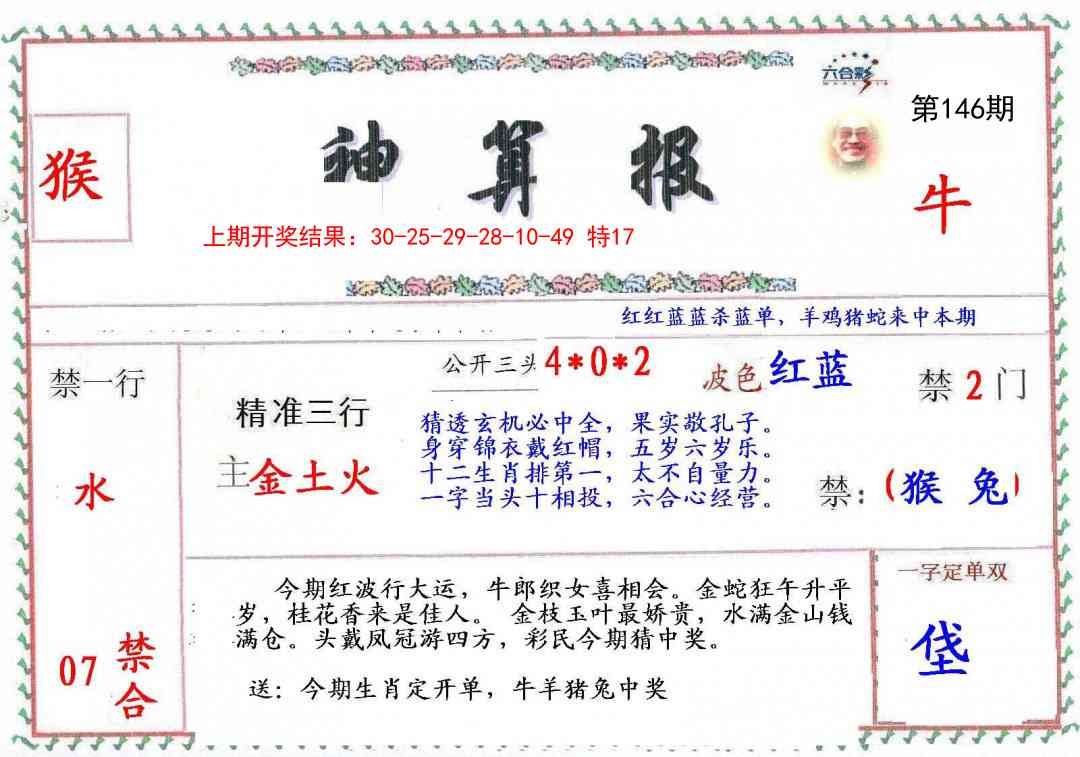 六合彩
第146期
猴
神算报
牛
上期开奖结果：30-25-29-28-10-49 特17
红红蓝蓝杀蓝单，羊鸡猪蛇来中本期
公开三头 4*0*2
波色 红蓝
禁一行
禁 2 门
精准三行
猜透玄机必中全，果实敬孔子。
身穿锦衣戴红帽，五岁六岁乐。
十二生肖排第一，太不自量力。
一字当头十相投，六合心经营。
主 金土火
水
禁：(猴 兔)
一字定单双
今期红波行大运，牛郎织女喜相会。金蛇狂午升平
岁，桂花香来是佳人。 金枝玉叶最娇贵，水满金山钱
满仓。头戴凤冠游四方，彩民今期猜中奖。
垈
07 禁合
送：今期生肖定开单，牛羊猪兔中奖